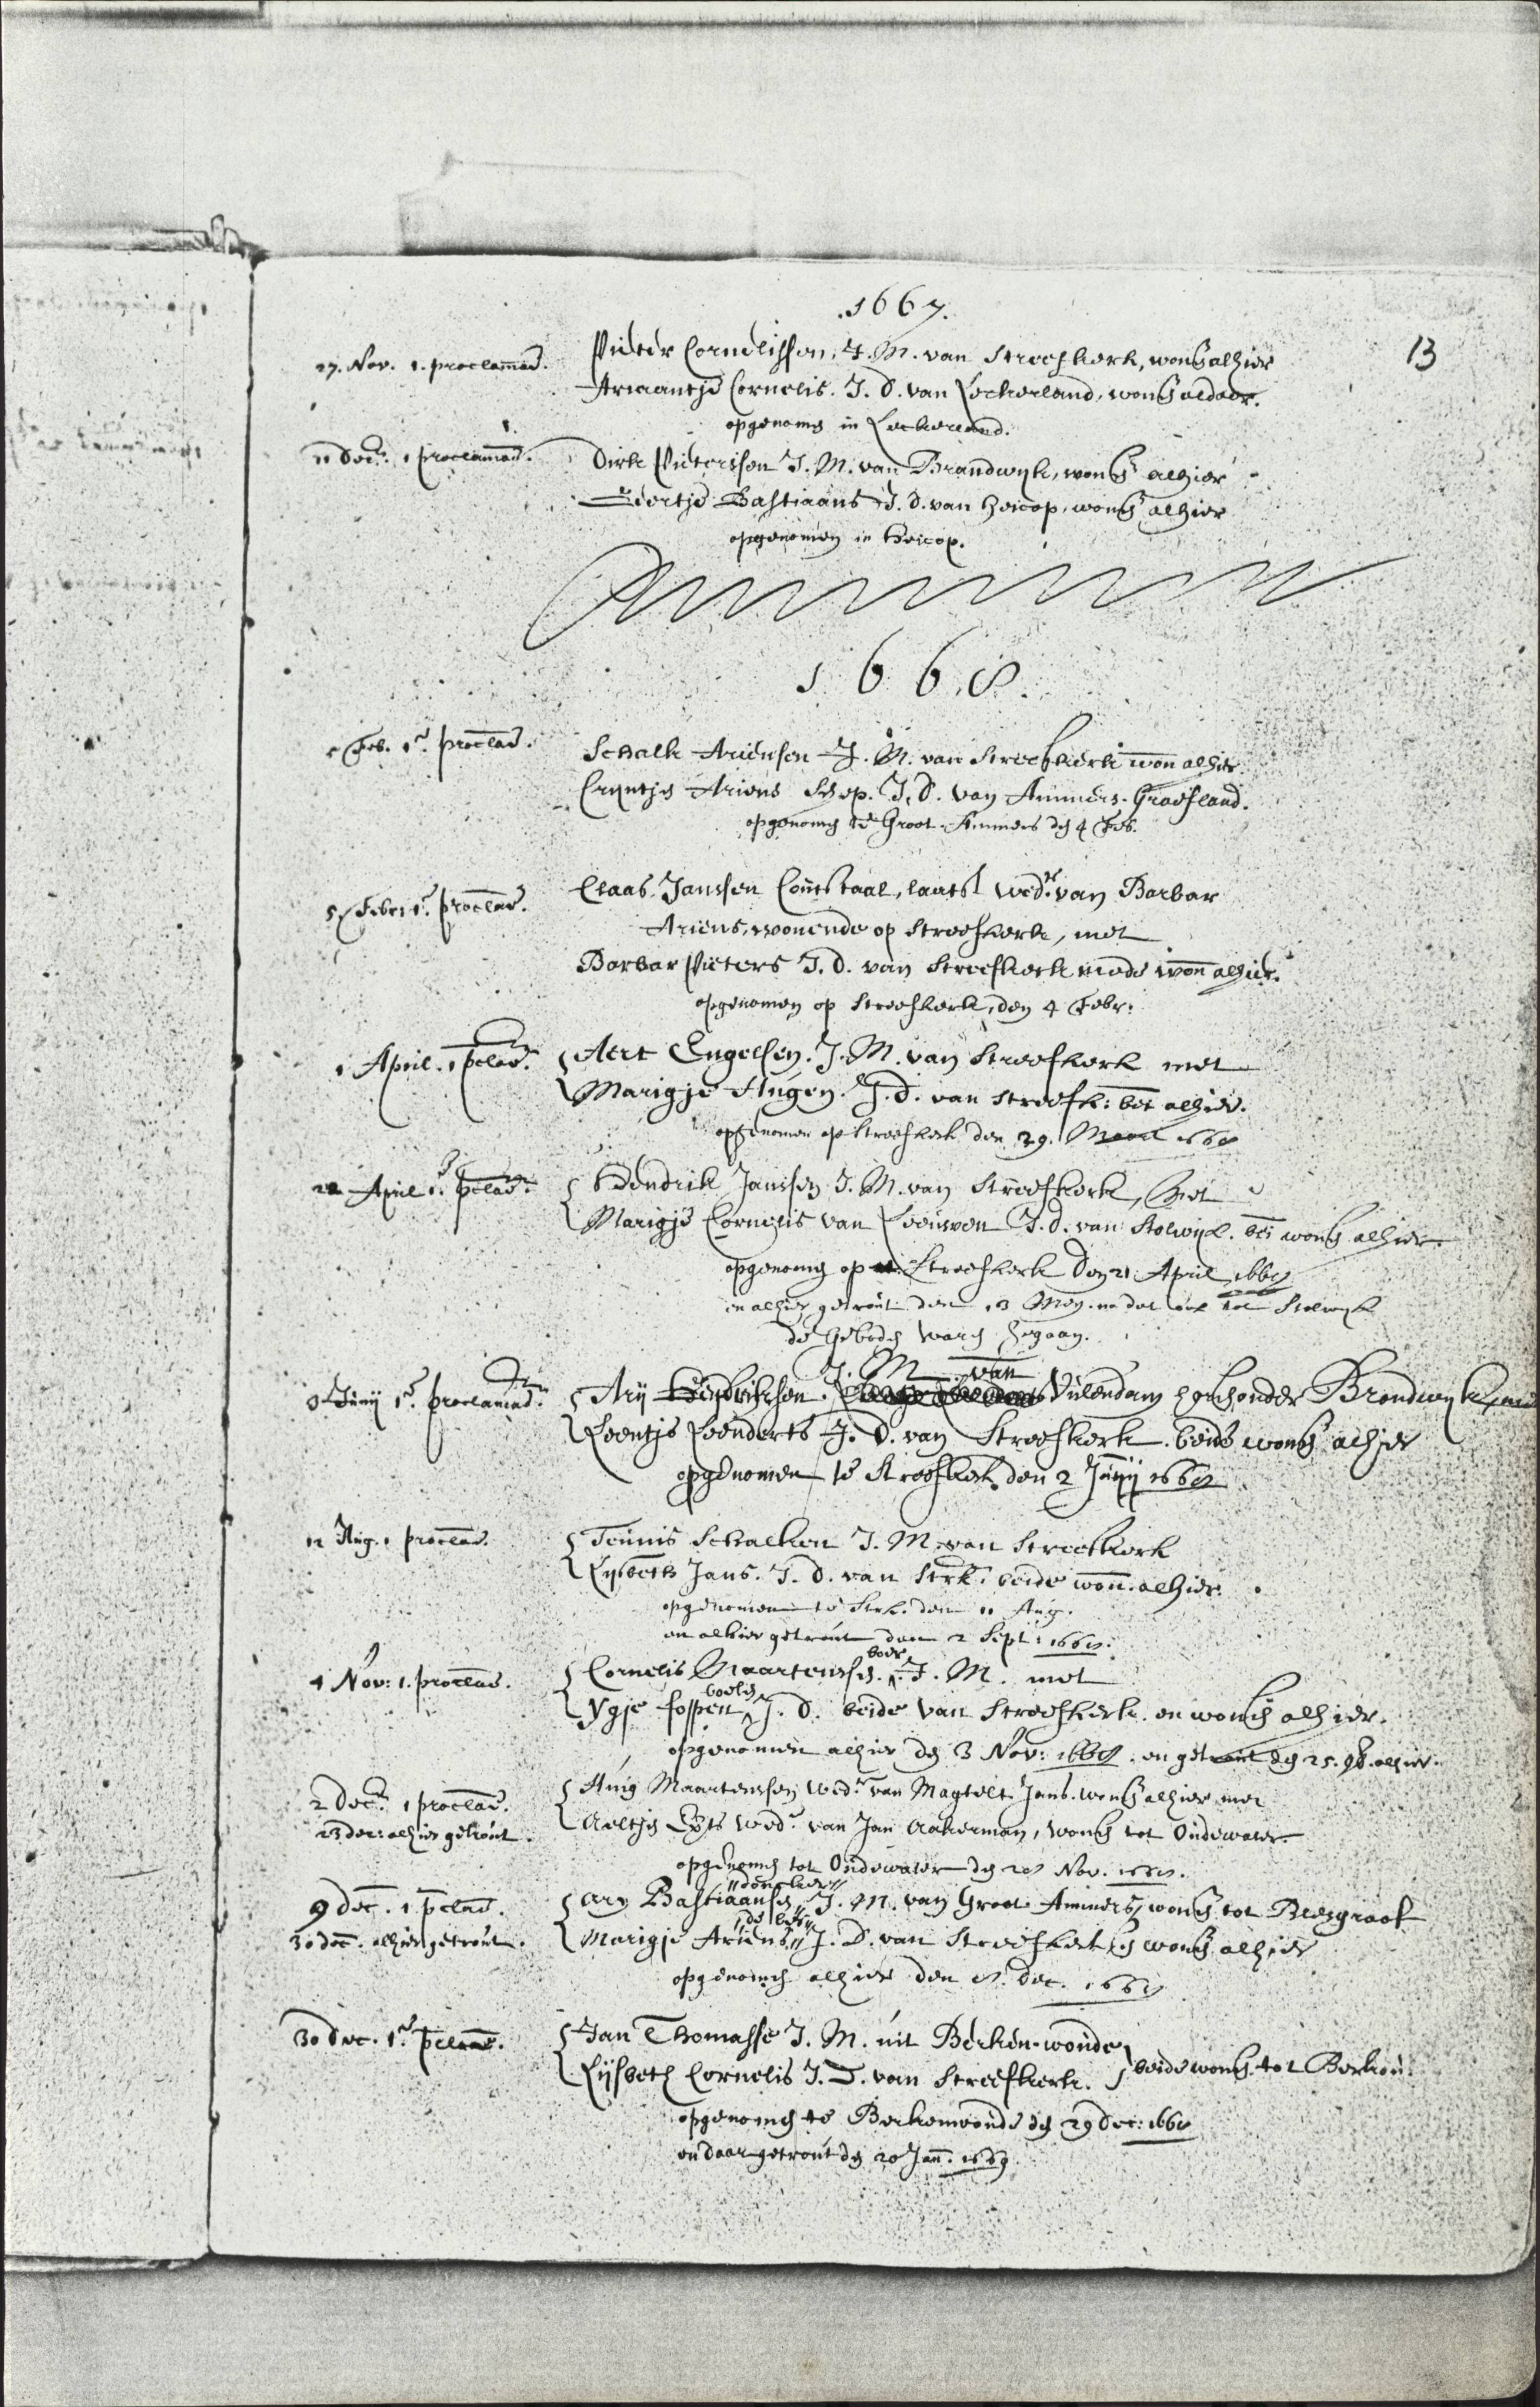 .1667.
13
27. Nov. 1. proclamað.
Pieter Cornelissen, J. M. van Streefkerk, wonð alhier
Ariaantje Cornelis. J. D. van Leckerland, wonð aldaer.
opgenomð in Leckerland.
11 Decr. 1 proclamað.
Dirk Pieterssen J. M. van Brandwijk, wonð alhier
Bastiaans J. d. van heicop, wonð alhier
opgenomen in heicop.
1668.
5 Feb. 1e proclað.
Schalk Ariensen J. M. van Streefkerk won alhier.
Crijntje Ariens Schep. J. D. van Ammers-Graefland.
opgenomð te Groot-Ammers dð 4 Feb.
5 Febr: 1e proclað.
Claas Janssen Constaal, laatst wedr. van Barbar
Ariens, wonende op Streefkerk, met
Barbar Pieters J. d. van Streefkerk mede won alhier.
opgenomen op Streefkerk, den 4 Febr:
1 April. 1 pclað.
Aert Engelsen. J. M. van Streefkerk met
Marigje Hugen. J. d. van Streefk: bei alhier.
opgenomen op Streefkerk den 29. Maart 1668
22 April 1e pclað.
Hendrik Janssen J. M. van Streefkerk, Met
Marigje Cornelis van Leeuwen J. d. van Stolwijk. bei wonð alhier.
opgenomð op Streefkerk den 21 April 1668
en alhier getrout den 13 Mey. na dat ook tot Stolwijk
de Gebodð warð gegaan.
J. M van
3 Junij 1e proclamað.
Arij Hendriksen. Vulendam onder Brandwijk, met
Leentje Leenderts J. D. van Streefkerk. beide wonð alhier
opgenomen te Streefkerk den 2 Junij 1668
12 Aug. 1 proclað.
Teunis Schalken J. M. van Streefkerk
Lijsbeth Jans. J. D. van Strk. beide won. alhier.
opgenomen te Strk. den 11 Aug.
en alhier getrout den 2 Sept: 1668.
boer
4 Nov: 1. proclað.
Cornelis Maartenssð. J. M. met
Ygje foppen J. D. beide van Streefkerk. en wonð alhier.
opgenomen alhier dð 3 Nov: 1668. en getrout dð 25. 9b. alhier.
2 Decr. 1 proclað.
Huig Maartenssen wedr. van Magtelt Jans. wonð alhier met
23 dec: alhier getrout.
Aeltje wedr. van Jan Aakerman, wonð tot Oudewater.
opgenomð tot Oudewater dð 28 Nov. 1668.
doncker
9 Dec. 1 pclað.
Ary Bastiaansð J. M. van Groot Ammers, wonð tot Bleesgraaf
30 dec. alhier getrout.
Marigje Ariens J. D. van Streefkerk en wonð alhier
opgenomð alhier den 8. Dec. 1668
30 Dec. 1e pclað.
Jan Thomasse J. M. uit Berken-woude
beide wonð tot Berkou:
Lijsbeth Cornelis J. D. van Streefkerk.
opgenomð te Berkenwoude dð 29 Dec: 1668
en daar getrout dð 20 Jan: 1669